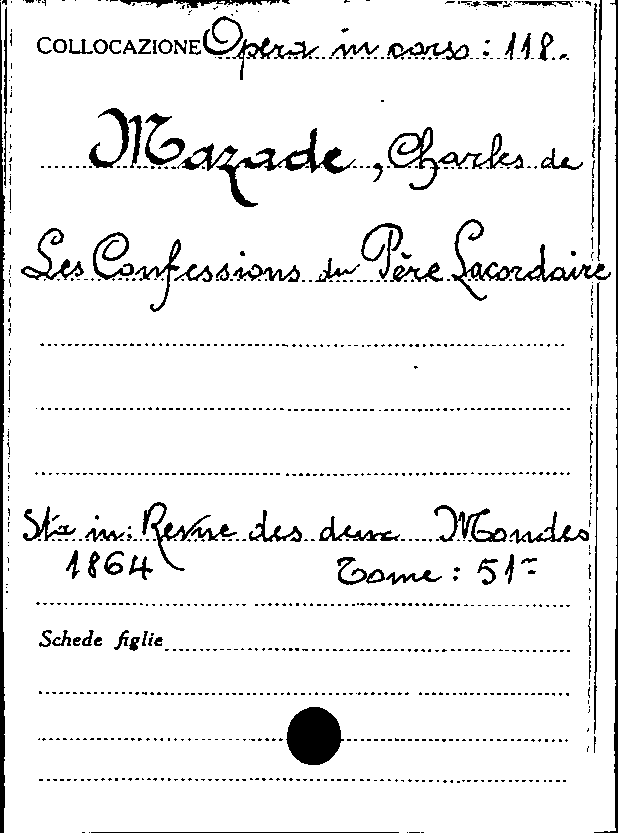 COLLOCAZIONE Opera in corso : 118.
Mazade, Charles de
Les Confessions du Père Lacordaire
Sta in: Revue des deux Mondes
1864 Tome : 51-
Schede figlie